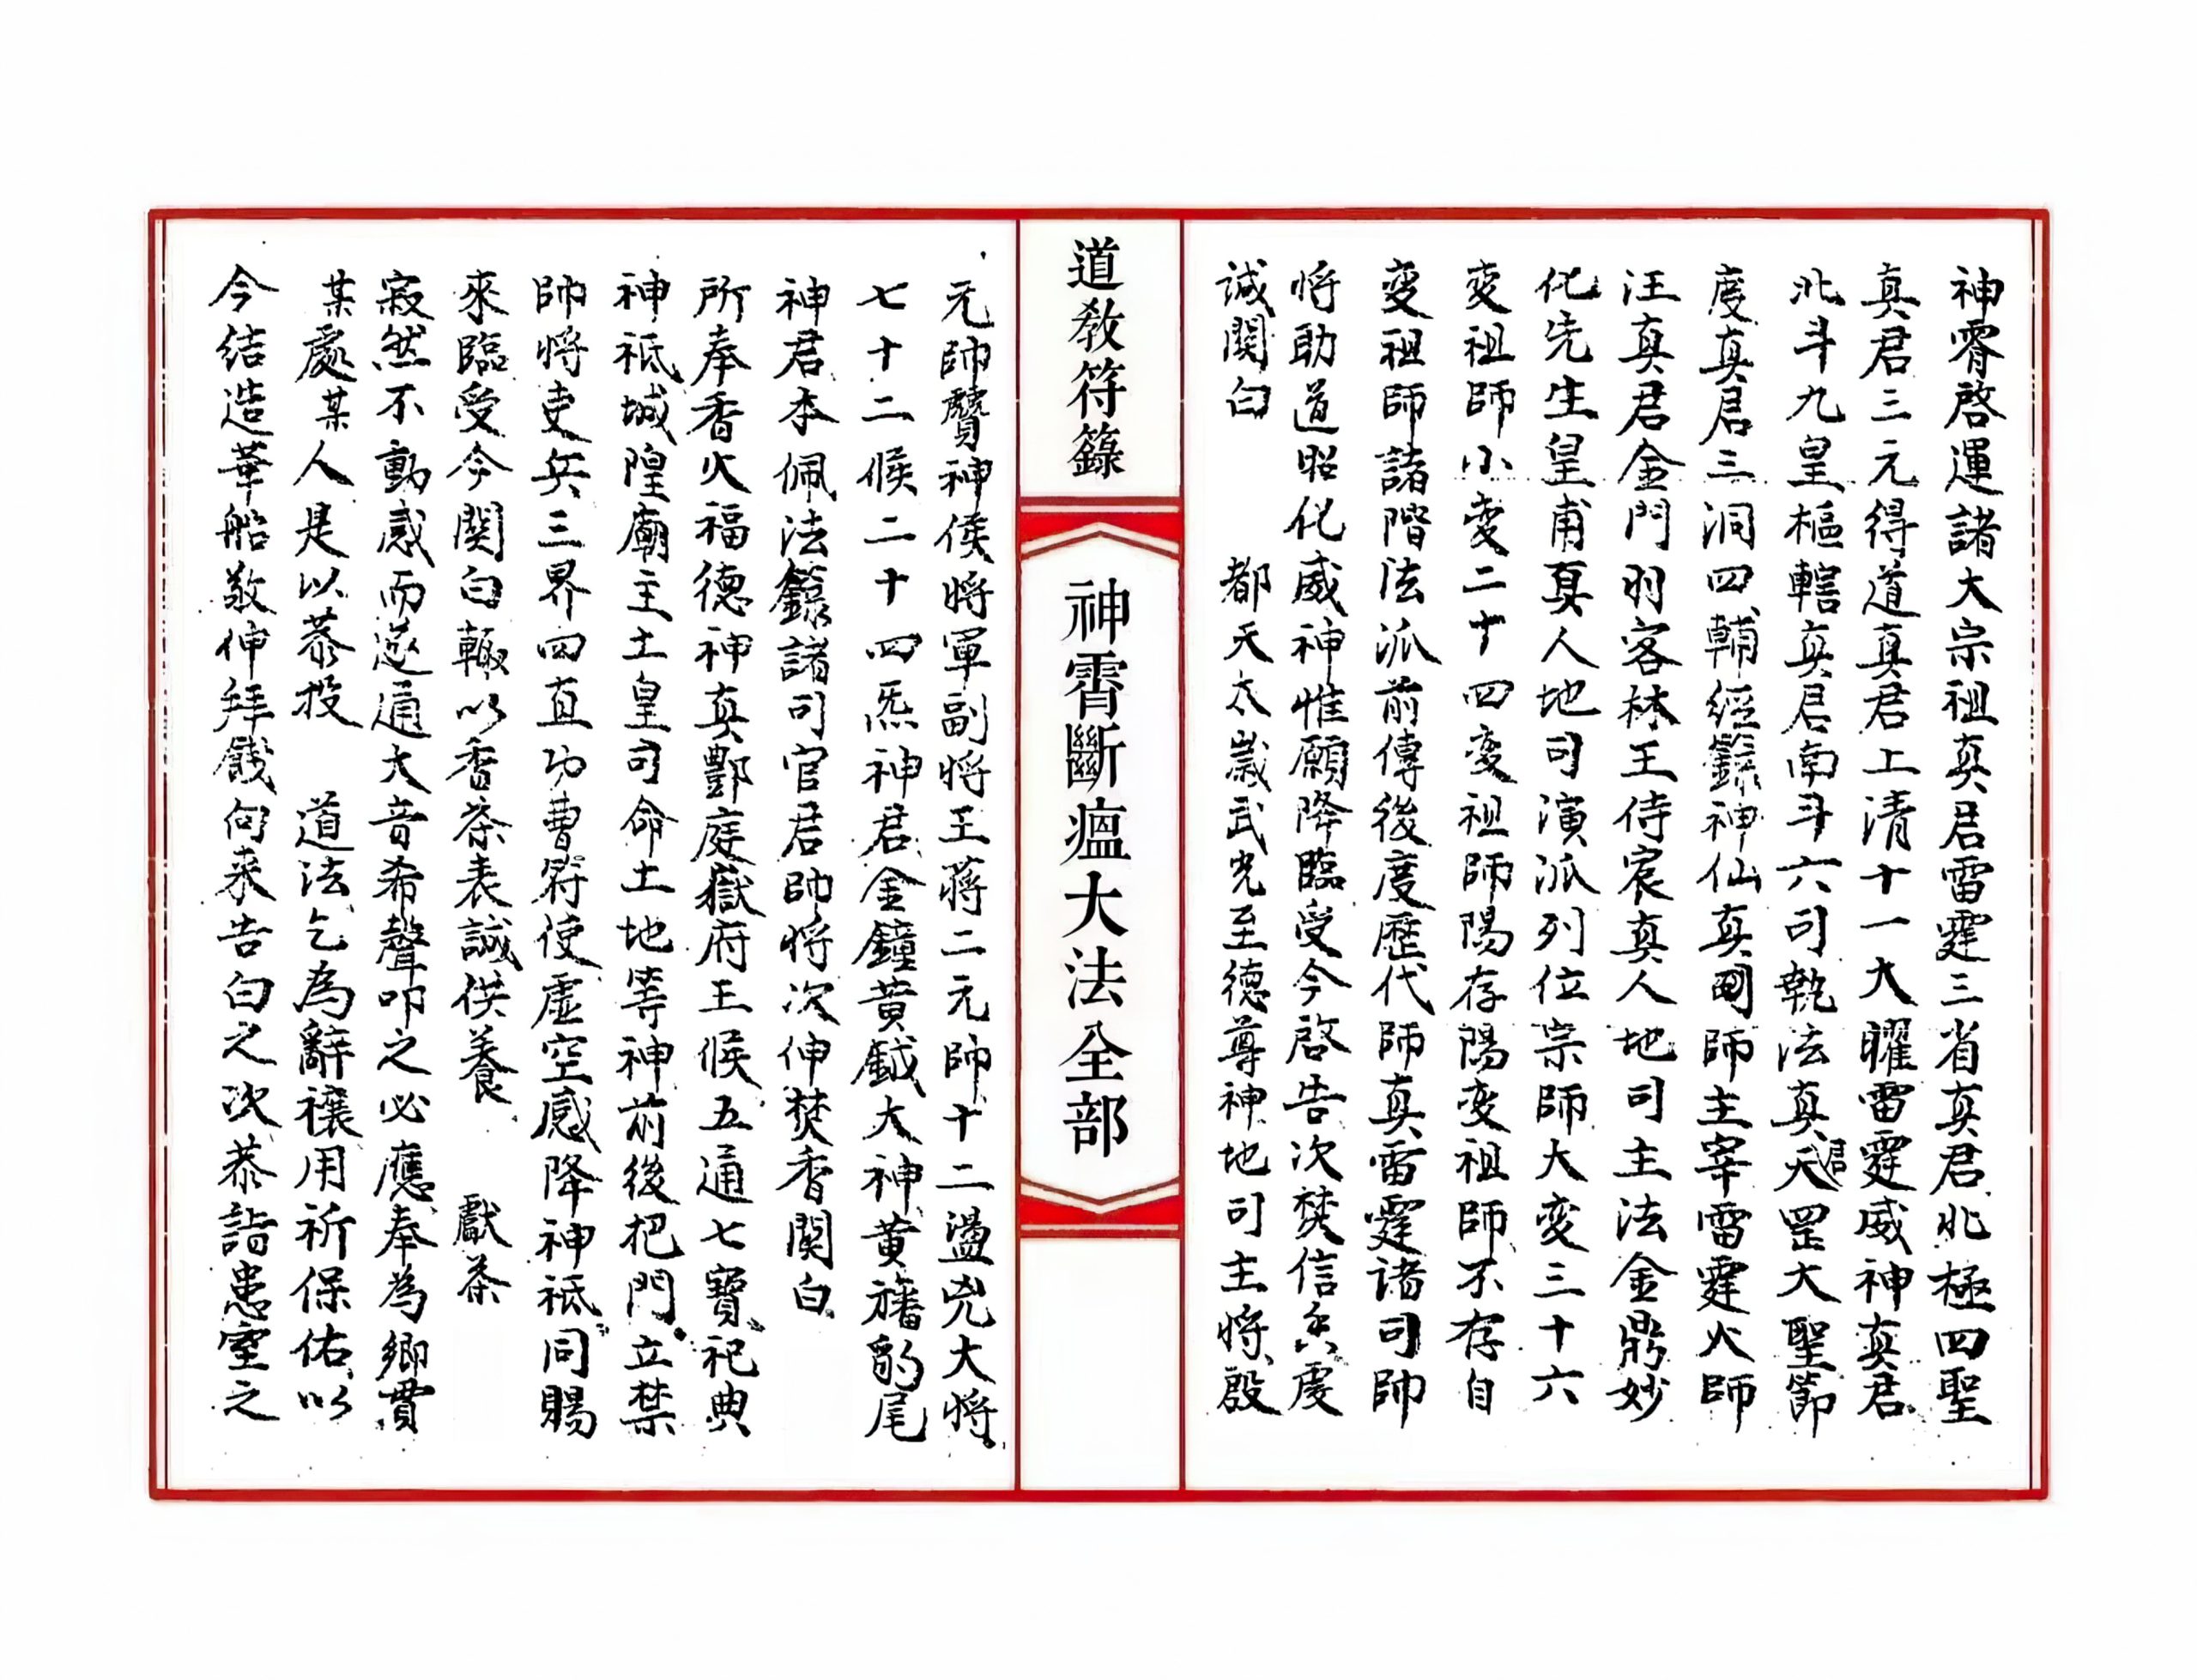 神霄啓運諸大宗祖真君雷霆三省真君北極四聖
真君三元得道真君上清十一大曜雷霆威神真君
北斗九皇樞轄真君南斗六司執法真君天罡大聖節
度真君三洞四輔經籙神仙真師主宰雷霆火師
汪真君金門羽客林王侍宸真人地司主法金鼎妙
化先生皇甫真人地司演派列位宗師大变三十六
变祖師小变二十四变祖師陽存陽变祖師不存自
变祖師諸階法派前傳後度歷代師真雷霆诸司帥
将助道昭化威神惟願降臨受今啓告次焚信香虔
誠関白 都天太歲武光至德尊神地司主将殷
道教符籙
神霄斷瘟大法全部
元帥贊神侯将軍副将王蔣二元帥十二盪兇大将
七十二候二十四炁神君金鐘黄鉞大神黄旛豹尾
神君本佩法籙諸司官君帥将次伸焚香関白
所奉香火福德神真酆庭嶽府王候五通七寶祀典
神祇城隍廟主土皇司命土地等神前後把門立禁
帥将吏兵三界四直功曹符使虚空感降神祇同賜
來臨受今関白輙以香茶表誠供養 獻茶
寂然不動感而遂通大音希聲叩之必應奉為鄉貫
某處某人是以恭投 道法乞為辭禳用祈保佑以
今结造華船敬伸拜餞向来告白之次恭詣患室之